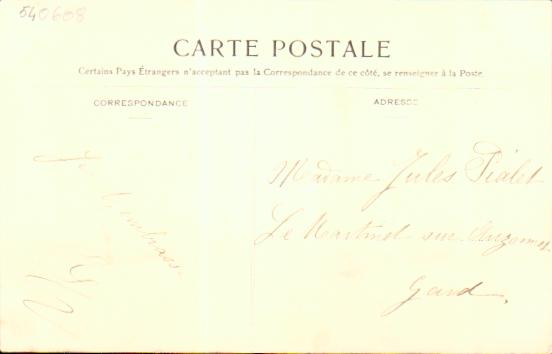 540608
CARTE POSTALE
Certains Pays Étrangers n'acceptant pas la Correspondance de ce côté, se renseigner à la Poste.
CORRESPONDANCE
ADRESSE
Je t'embrasse
Madame Jules Pialet
Le Martinet sur Auzonnet
Gard